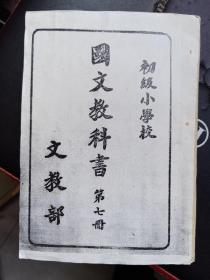 初級小學校
國文教科書 第七冊
文教部